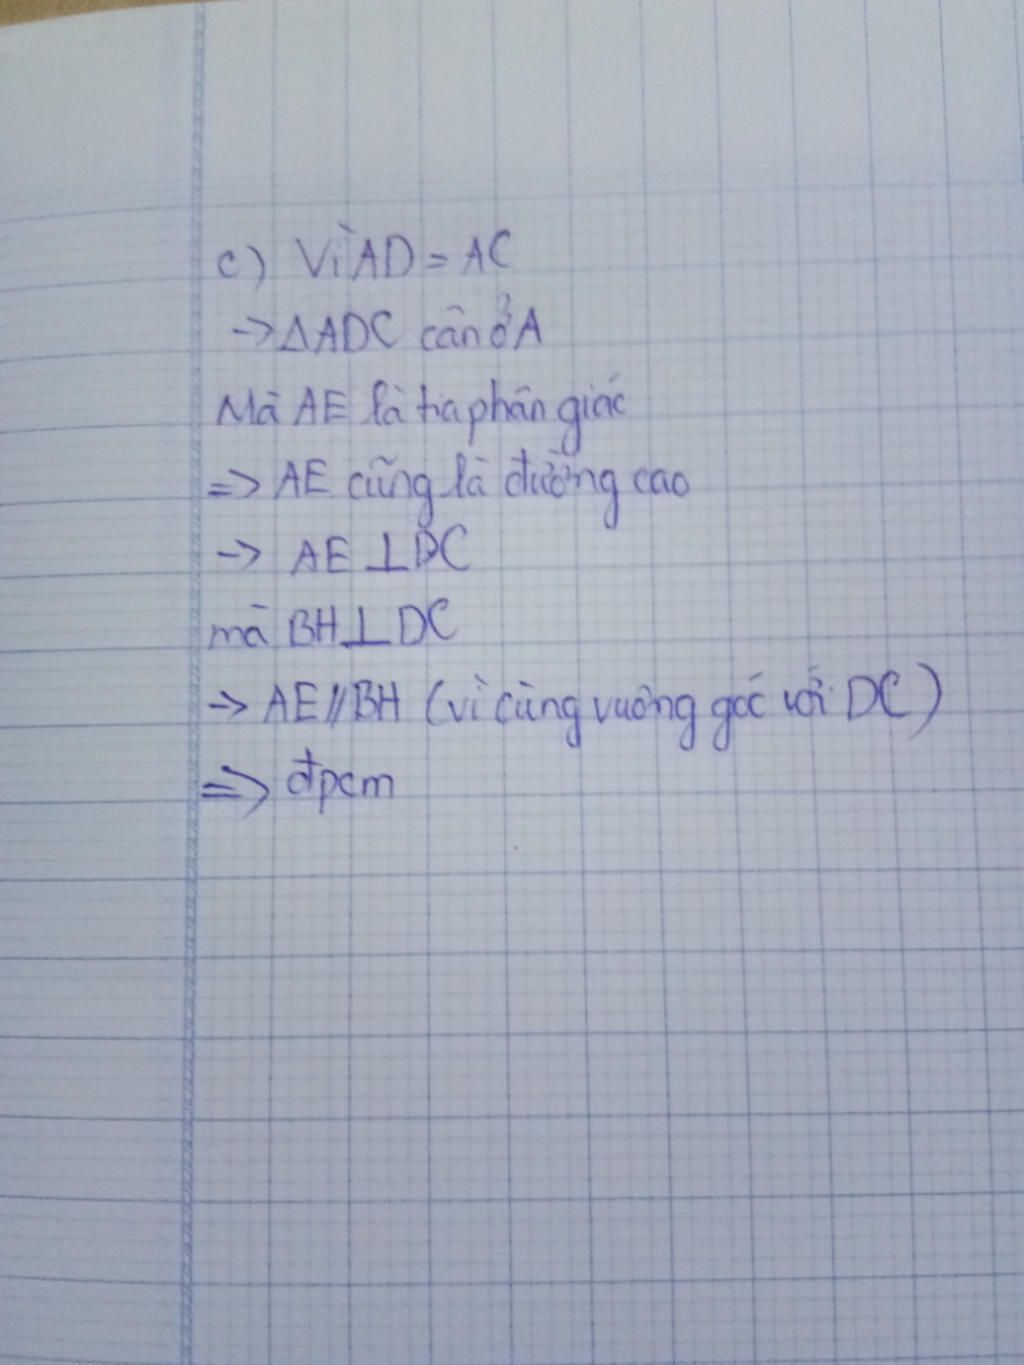 c) Vì AD = AC
-> ΔADC cân ở A
Mà AE là tia phân giác
=> AE cũng là đường cao
-> AE ⊥ DC
mà BH ⊥ DC
-> AE // BH (vì cùng vuông góc với DC)
=> đpcm